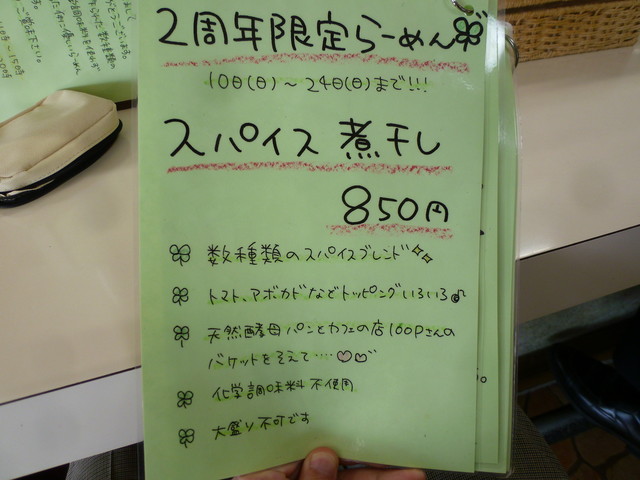 2周年限定らーめん
10日(日)～24日(日)まで!!!
スパイス煮干し
850円
数種類のスパイスブレンド
トマト、アボカドなどトッピングいろいろ♪
天然酵母パンとカフェの店loopさんの
バケットをそえて‥‥♡♡
化学調味料不使用
大盛り不可です